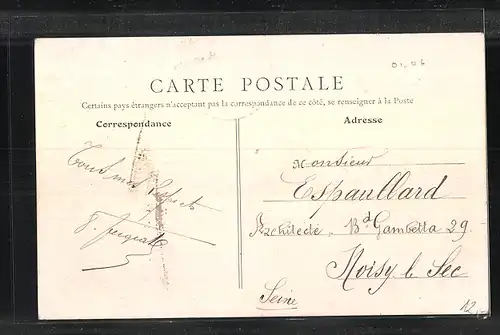 01.06
CARTE POSTALE
Certains pays étrangers n'acceptant pas la correspondance de ce côté, se renseigner à la Poste
Correspondance
Adresse
Monsieur
Espaullard
Tous mes Respects
Architecte . Bd Gambetta 29.
Noisy le Sec
Seine
12